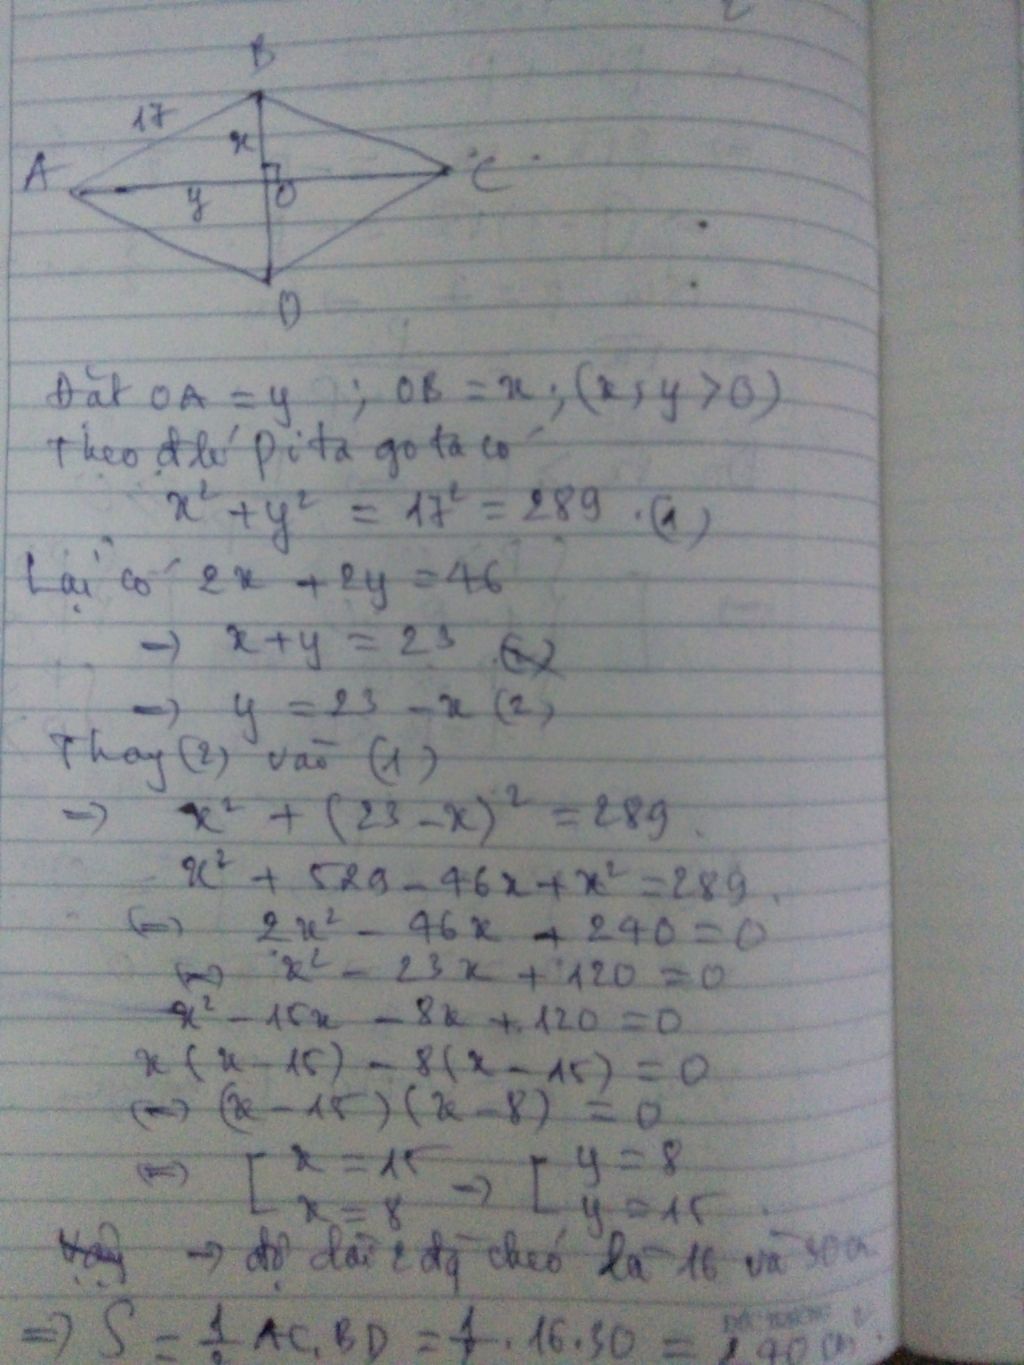 B
17
x
A
C
y
O
D
Đặt OA = y ; OB = x ; (x ; y > 0)
Theo đ lí Pi ta go ta có
x² + y² = 17² = 289 . (1)
Lại có 2x + 2y = 46
→ x + y = 23
→ y = 23 - x (2)
Thay (2) vào (1)
→ x² + (23 - x)² = 289 .
x² + 529 - 46x + x² = 289 .
⇔ 2x² - 46x + 240 = 0
⇔ x² - 23x + 120 = 0
x² - 15x - 8x + 120 = 0
x(x - 15) - 8(x - 15) = 0
⇔ (x - 15)(x - 8) = 0
⇔ [ x = 15 → [ y = 8
x = 8 y = 15 .
→ độ dài 2 đg chéo là 16 và 30 cm
⇒ S = 1/2 AC . BD = 1/ . 16 . 30 = 240 cm